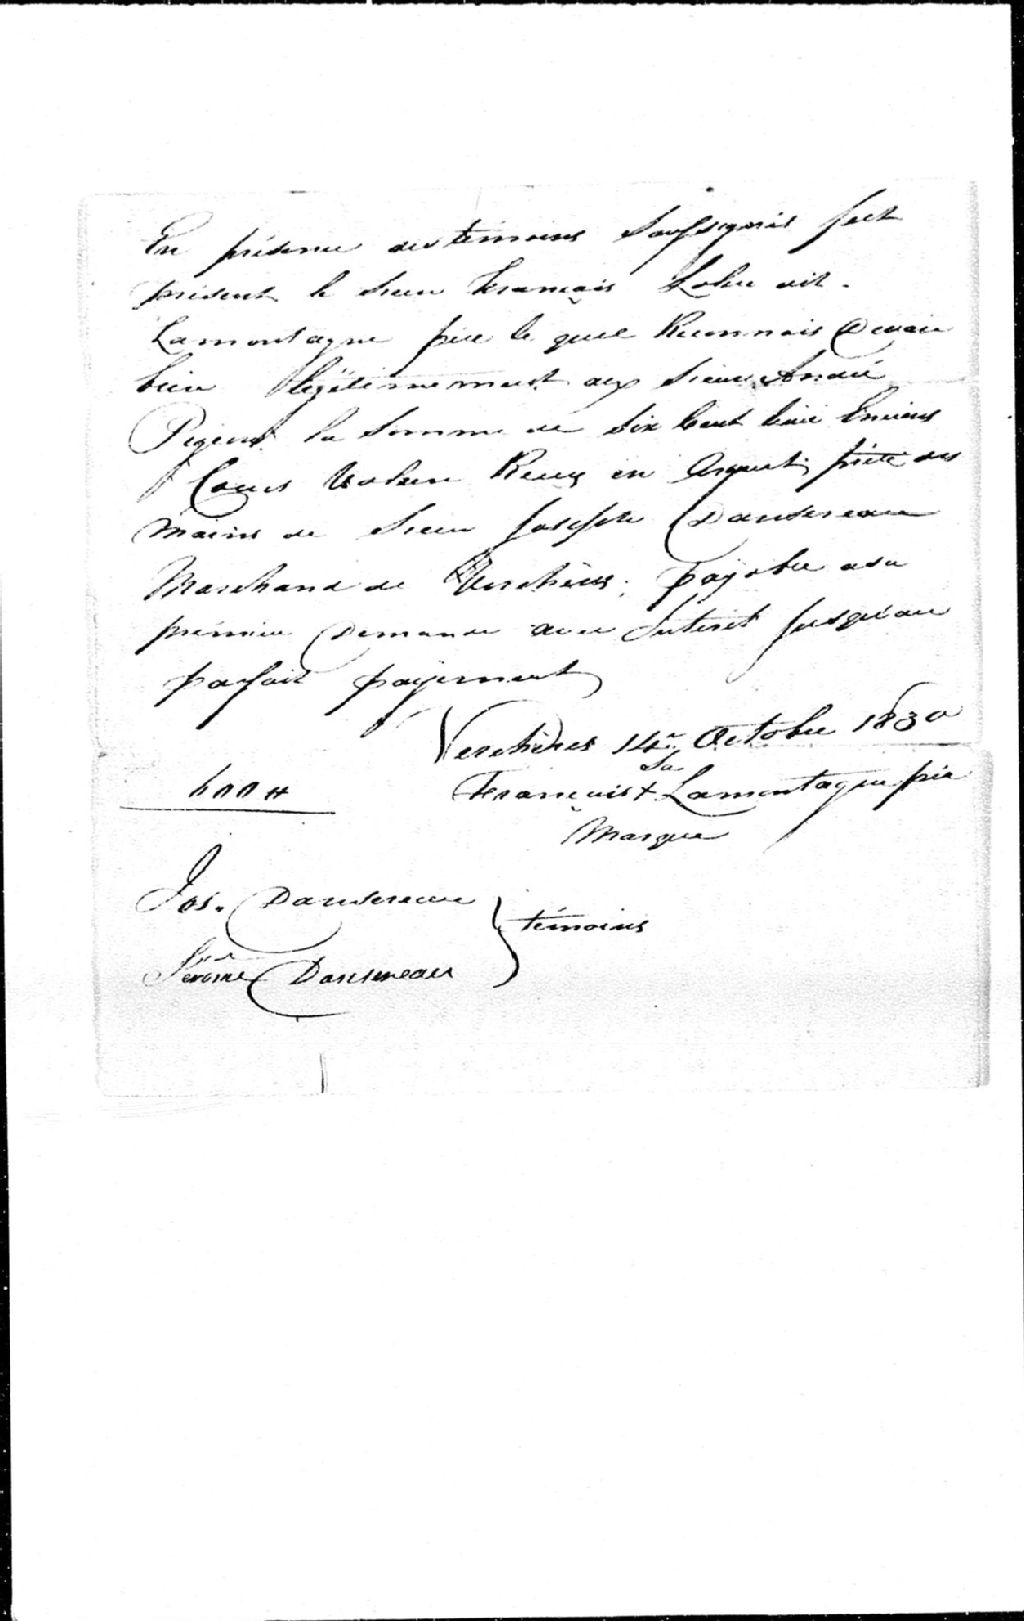 En présence des témoins Soussignés fut
présent le Sieur François dit
Lamontagne père le quel Reconnois Devoir
bien légitimement au Sieur André
Pigeon la Somme de Six Cent Livre Enciens
Cours en Argent prêté des
mains de Sieur Joseph Dansereau
Marchand de Verchères, payable a sa
première Demande avec Intérêt Jusqu'au
parfait payement
Verchères 14 Octobre 1830
Sa
600 ₶ François + Lamontagne père
Marque
Jos. Dansereau
témoins
Jérome Dansereau